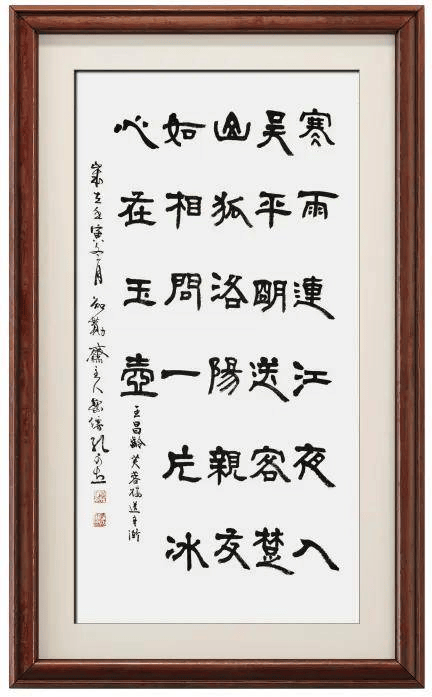 寒雨連江夜入
吴平明送客楚
山孤洛陽親友
如相問一片冰
心在玉壺
王昌齡芙蓉楼送辛漸
歲在壬寅冬月齋主人